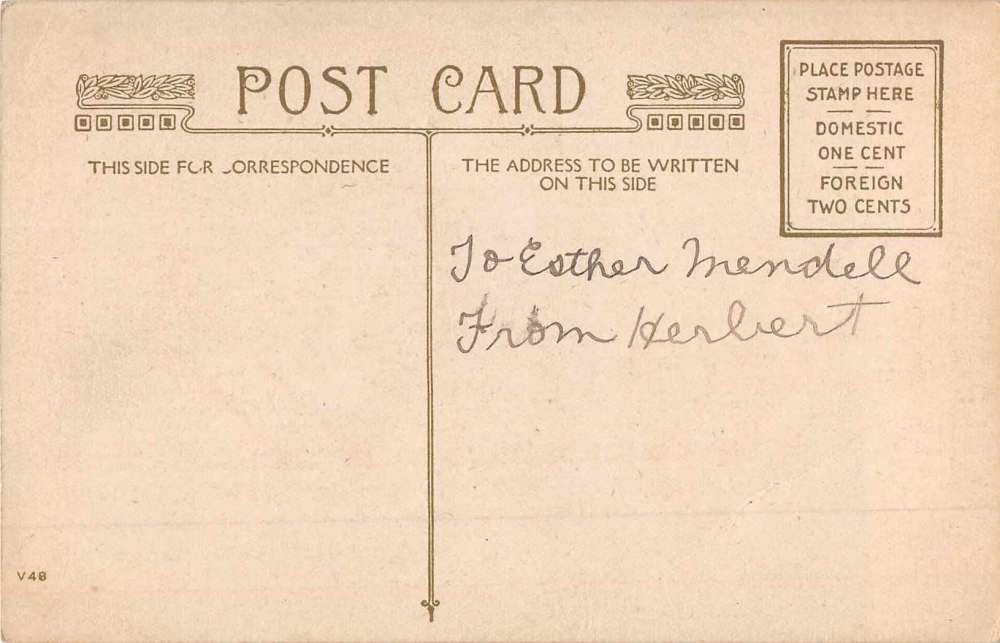 POST CARD
THIS SIDE FOR CORRESPONDENCE
THE ADDRESS TO BE WRITTEN
ON THIS SIDE
PLACE POSTAGE
STAMP HERE
DOMESTIC
ONE CENT
FOREIGN
TWO CENTS
To Esther Mendell
From Herbert
V48